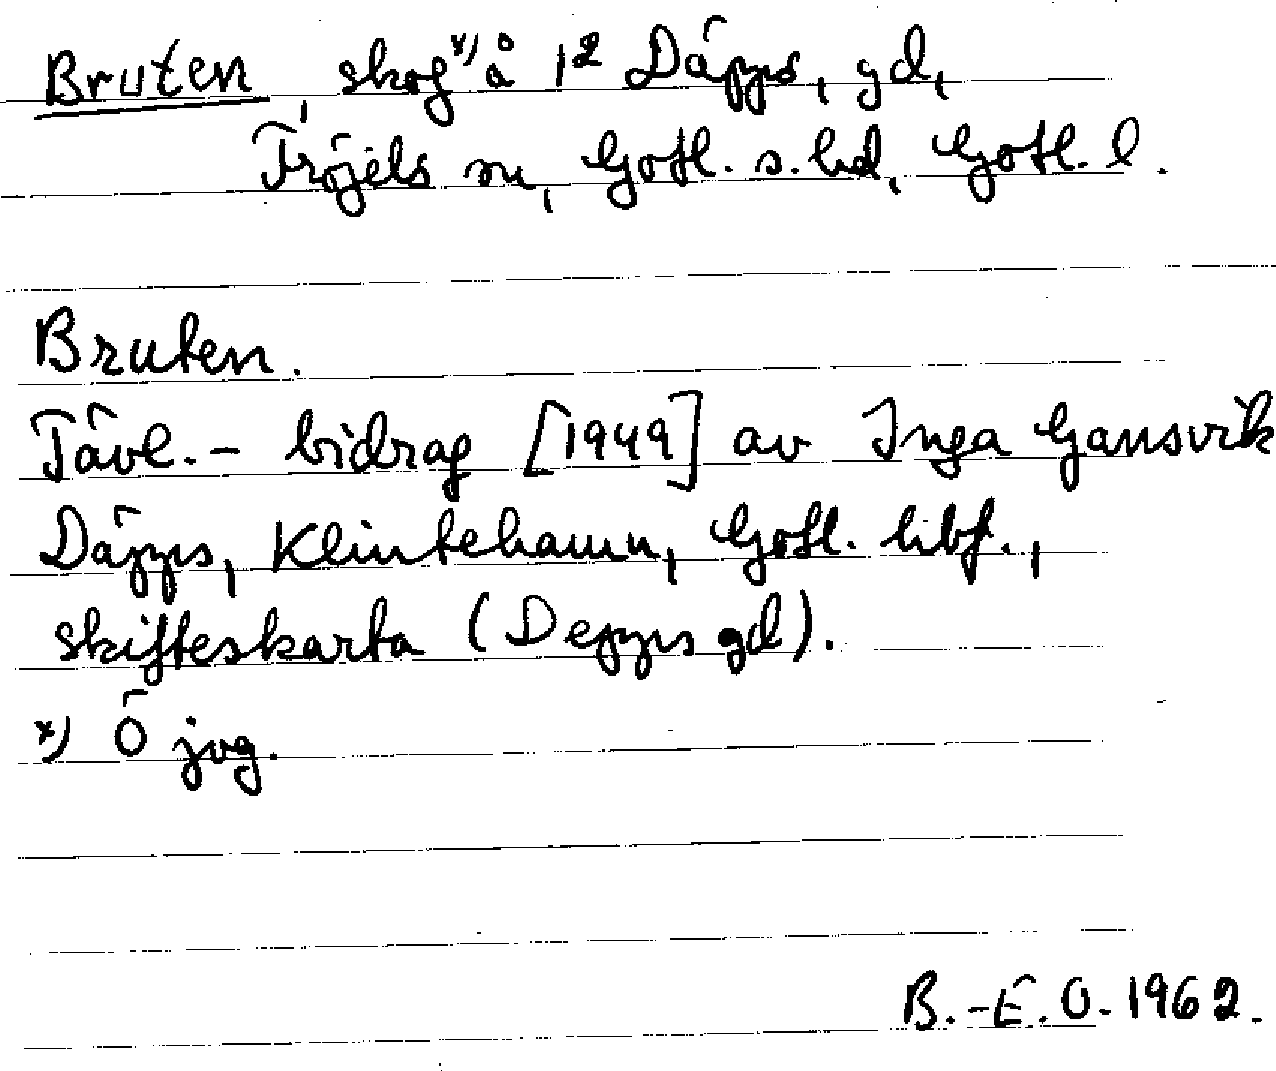 Bruten, skog x) å 1² Däpps, gd,
Fröjels sn, Gotl. s. hd, Gotl. l.
Bruten.
Tävl.- bidrag [1949] av Inga Gansvik
Däpps, Klintehamn, Gotl. hbf.,
skifteskarta (Depps gd).
x) Ö jvg.
B.-E. O. 1962.